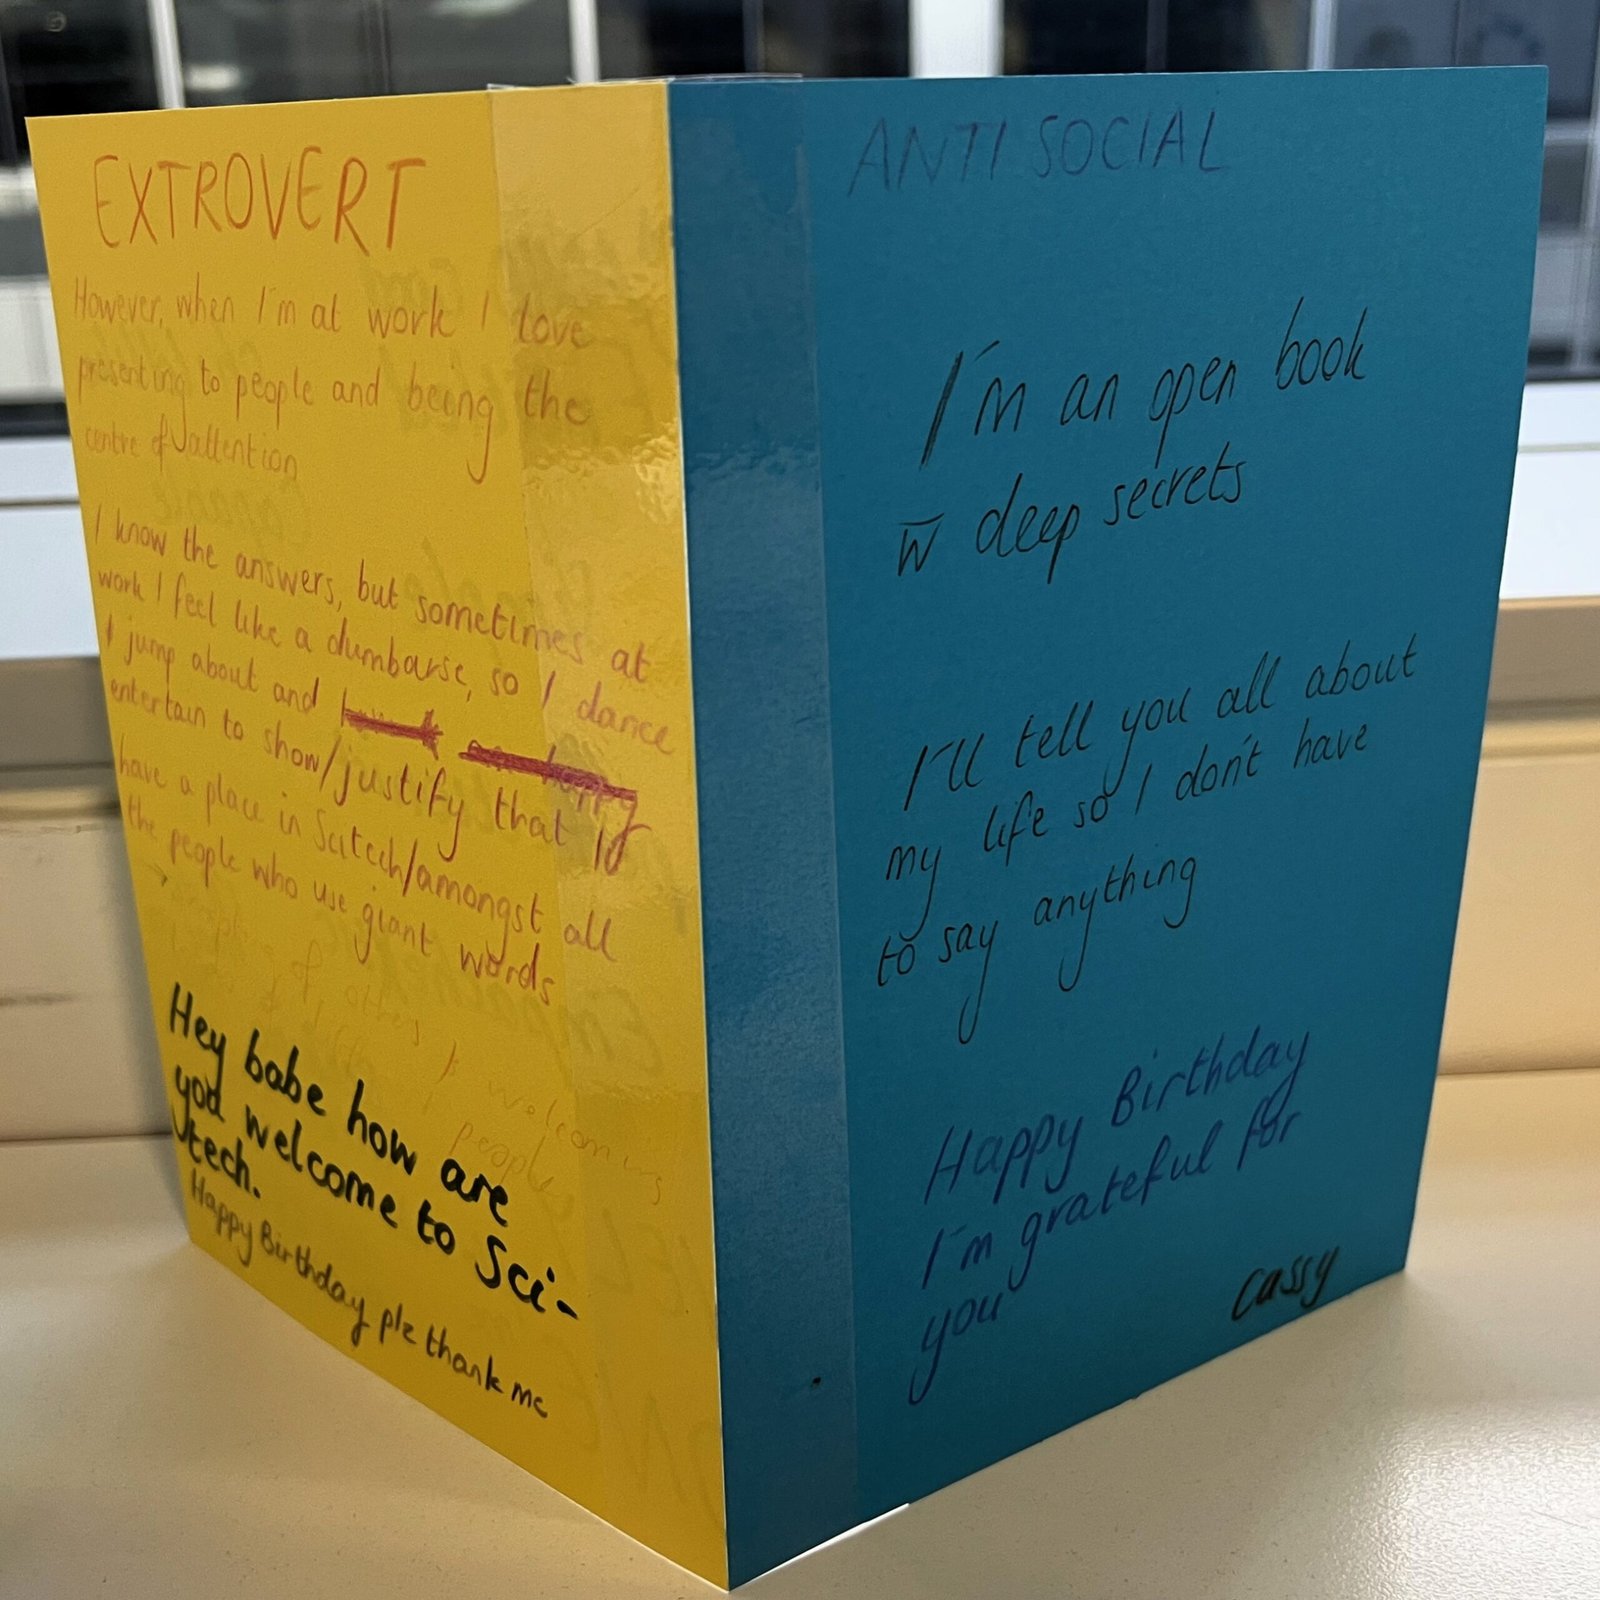 EXTROVERT
However, when I'm at work I love
presenting to people and being the
centre of attention
I know the answers, but sometimes at
work I feel like a dumbarse, so I dance
I jump about and
entertain to show/justify that I
have a place in Scitech/amongst all
the people who use giant words
people of others
welcoming
people
Hey babe how are
you welcome to Sci-
tech.
Happy Birthday plz thank me
ANTI SOCIAL
I'm an open book
w̅ deep secrets
I'll tell you all about
my life so I don't have
to say anything
Happy Birthday
I'm grateful for
you
Cassy